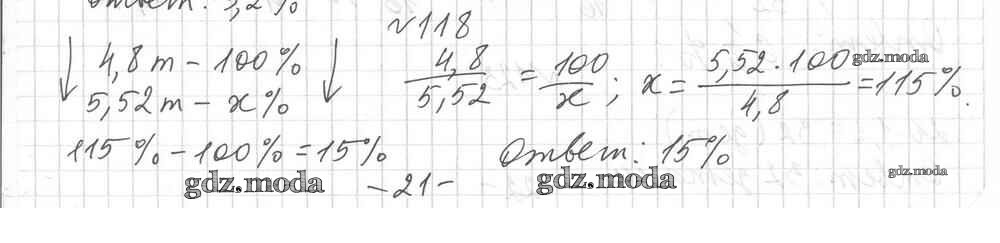 Ответ: 3,2%
№118
4,8 т – 100%
5,52 т – x%
4,8/5,52 = 100/x; x = 5,52·100/4,8 = 115%.
115% – 100% = 15% Ответ: 15%
–21–
gdz.moda
gdz.moda
gdz.moda
gdz.moda